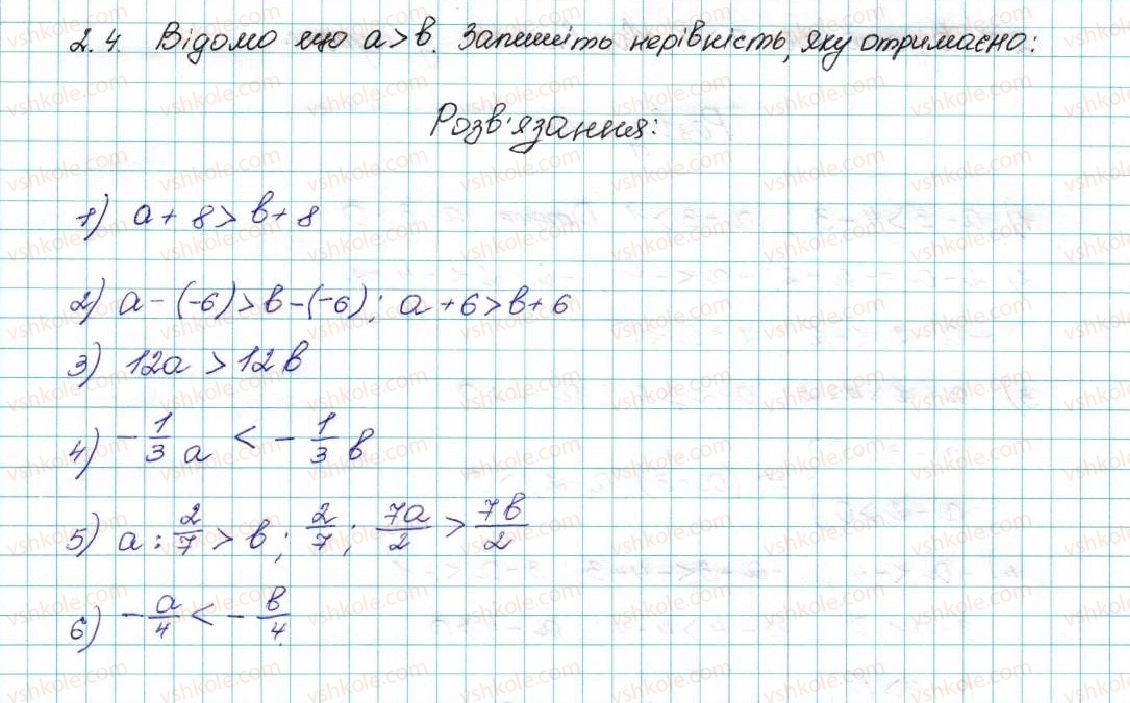 2.4. Відомо що a > b. Запишіть нерівність, яку отримаємо:
Розв'язання:
1) a + 8 > b + 8
2) a - (-6) > b - (-6); a + 6 > b + 6
3) 12a > 12b
4) -1/3 a < -1/3 b
5) a : 2/7 > b ; 2/7 ; 7a/2 > 7b/2
6) -a/4 < -b/4